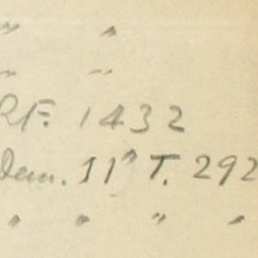 " "
" "
RF. 1432
Dem. 11" T. 292
" " " "